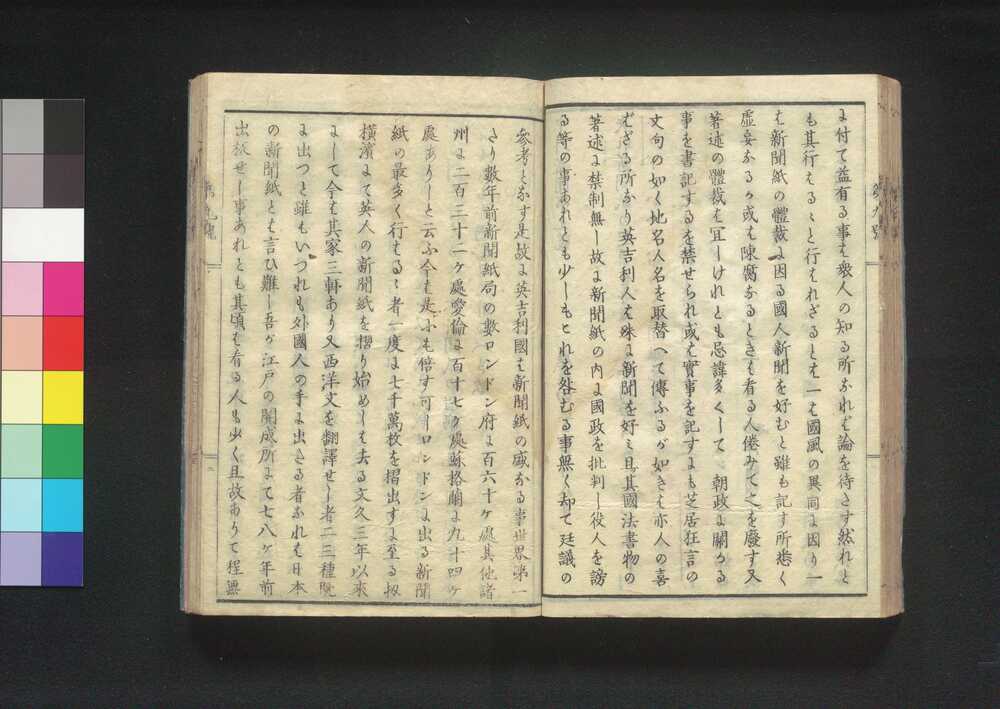 に付て益有る事は衆人の知る所なれば論を待さす然れと
も其行はるゝと行はれざるとは一は國風の異同に因り一
は新聞紙の體裁に因る國人新聞を好むと雖も記す所悉く
虚妄なるか或は陳腐なるときは看る人倦みて之を廢す又
著述の體裁は宜しけれとも忌諱多くして 朝政に關かる
事を書記するを禁せられ或は實事を記すにも芝居狂言の
文句の如く地名人名を取替へて傳ふるが如きは亦人の喜
ばざる所なり英吉利人は殊に新聞を好み且其國法書物の
著述に禁制無し故に新聞紙の内に國政を批判し役人を謗
る等の事あれとも少しもとれを咎むる事無く却て廷議の
參考となす是故に英吉利國は新聞紙の盛なる事世界第一
たり數年前新聞紙局の數ロンドン府に百六十ヶ處其他諸
州に二百三十二ヶ處愛倫に百十七ヶ處蘇格蘭に九十四ヶ
處ありしと云ふ今は是にも倍す可しロンドンに出る新聞
紙の最多く行はるゝ者一度に七千萬枚を摺出すに至る扨
橫濱にて英人の新聞紙を摺り始めしは去る文久三年以來
にして今は其家三軒あり又西洋文を翻譯せし者二三種既
に出つと雖もいつれも外國人の手に出さる者なれは日本
の新聞紙とは言ひ難し吾か江戸の開成所にて七八ヶ年前
出板せし事あれとも其頃は看る人も少く且故ありて程無
第九號
二